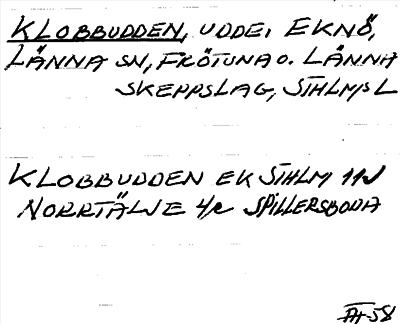 KLOBBUDDEN, UDDE, EKNÖ,
LÄNNA SN, FRÖTUNA O. LÄNNA
SKEPPSLAG, STHLMS L
KLOBBUDDEN EK STHLM 11J
NORRTÄLJE 4/c SPILLERSBODA
58